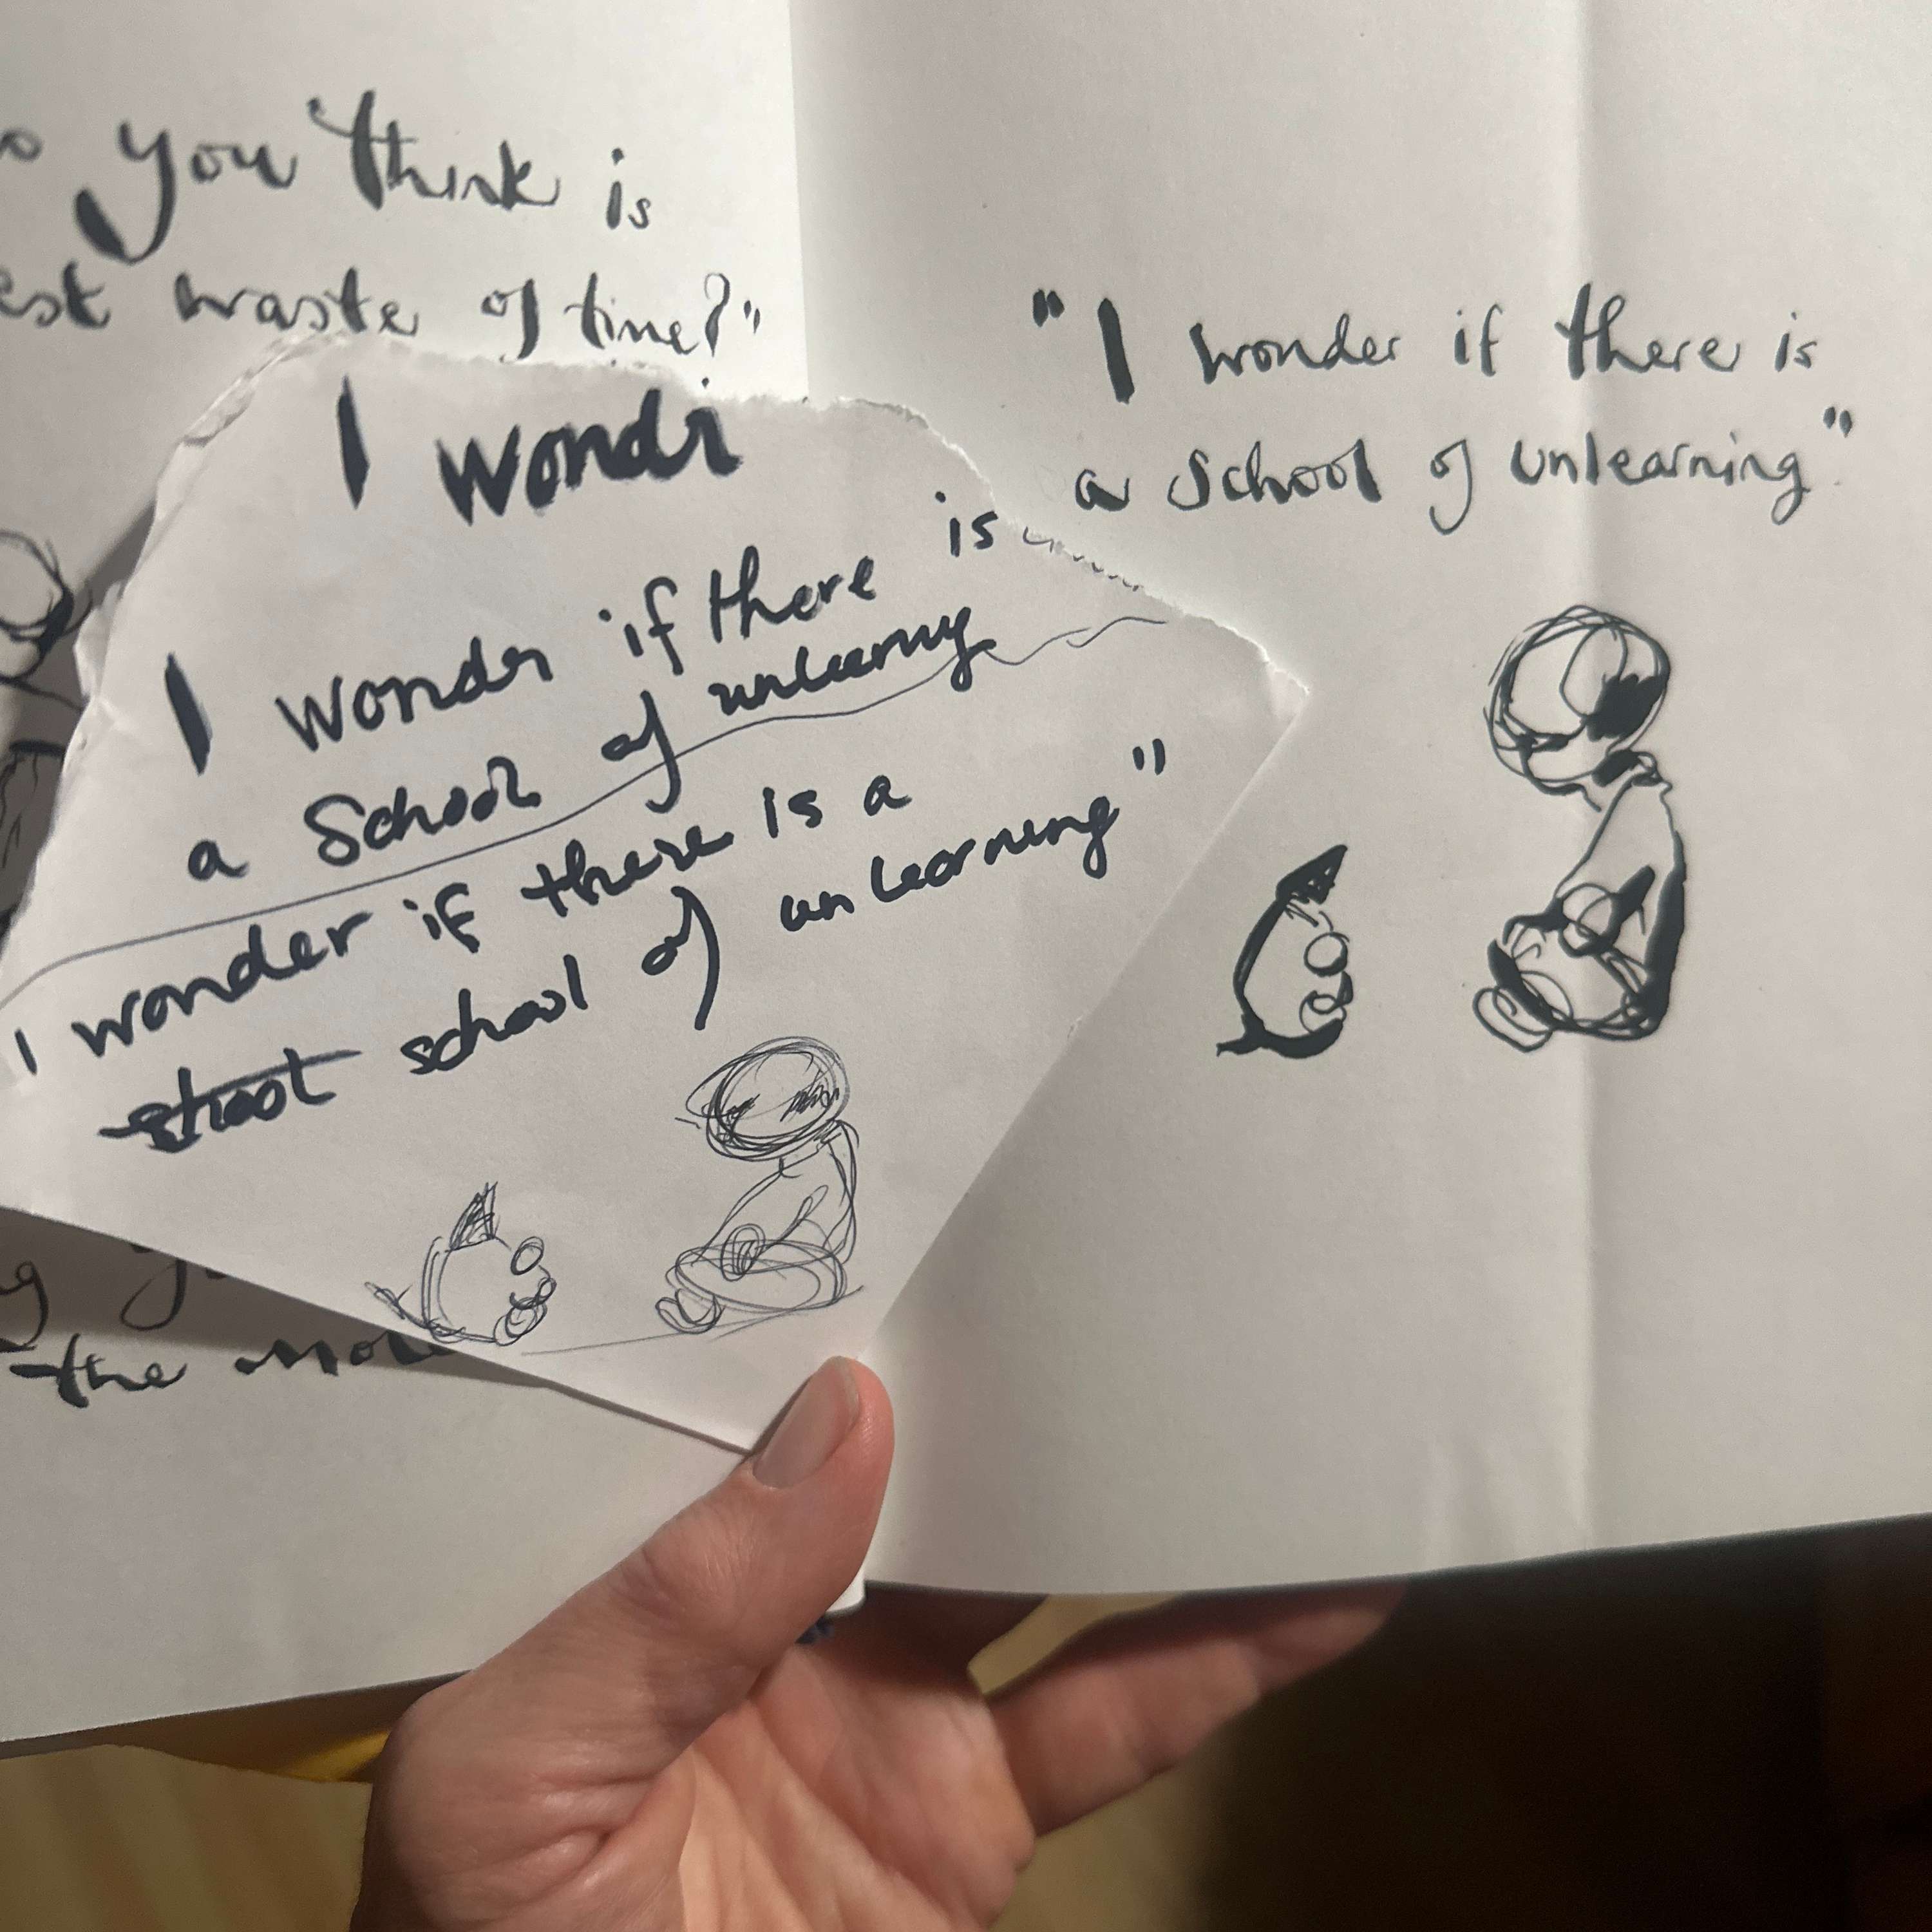 you think is
est waste of time?"
"I wonder if there is
a School of unlearning"
I wondr
I wondr if there is
a School of unlearny
I wonder if there is a
school of unlearning"
the